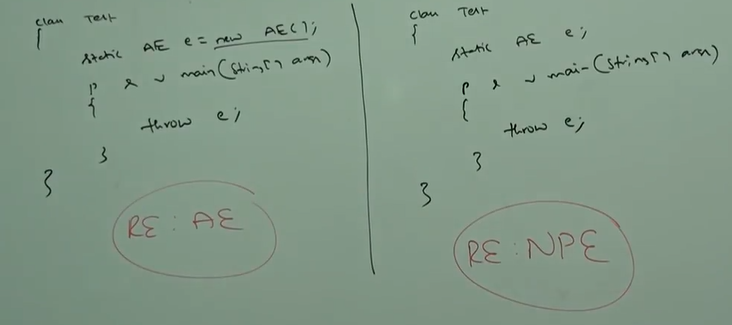 class Test
{
static AE e = new AE();
p s v main(String[] args)
{
throw e;
}
}
RE : AE
class Test
{
static AE e;
p s v main(String[] args)
{
throw e;
}
}
RE : NPE